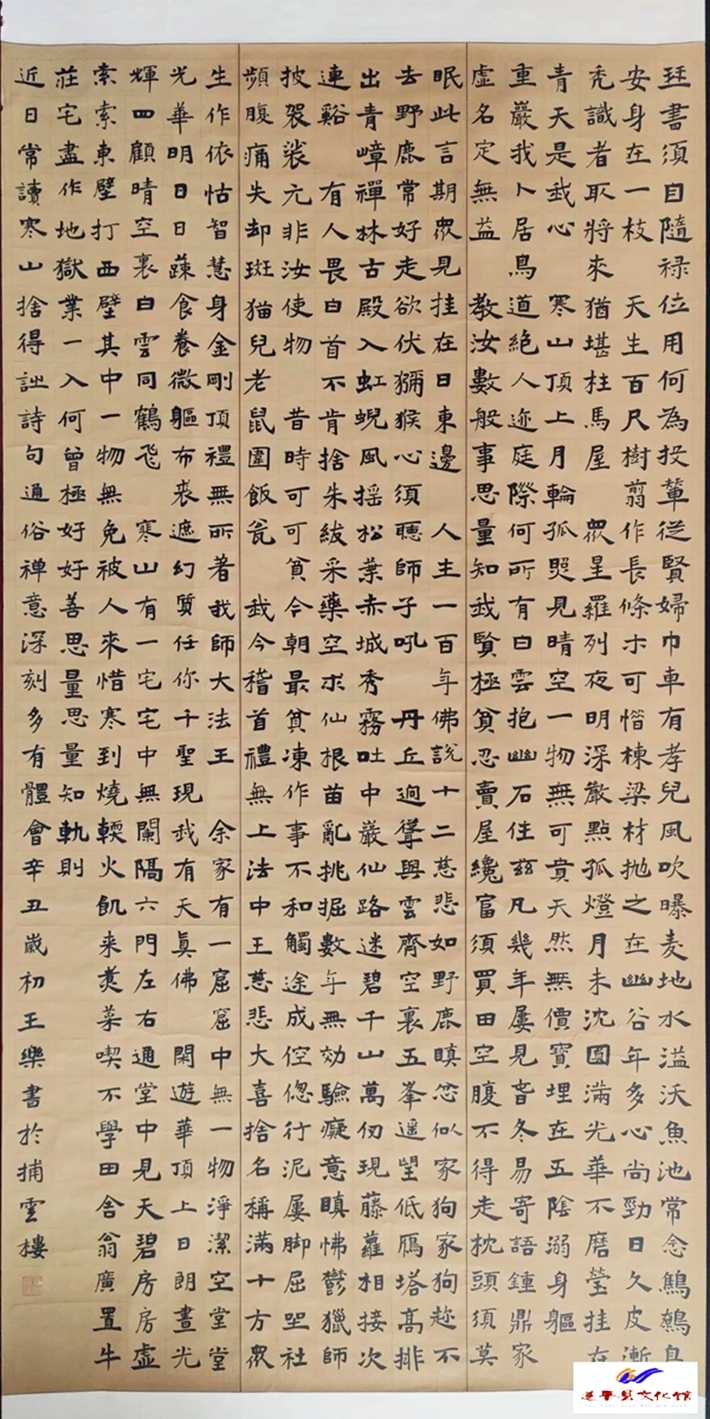 琴書須自隨禄位用何為投輦從賢婦巾車有孝兒風吹曝麦地水溢沃魚池常念鷦鷯自
安身在一枝　天生百尺樹翦作長條木可惜棟梁材抛之在幽谷年多心尚勁日久皮漸
秃識者取將來猶堪柱馬屋　眾星羅列夜明深巖點孤燈月未沈圓滿光華不磨瑩挂在
青天是我心　寒山頂上月輪孤照見晴空一物無可貴天然無價寶埋在五陰溺身軀
重巖我卜居鳥道絕人迹庭際何所有白雲抱幽石住兹凡幾年屢見音冬易寄語鍾鼎家
虛名定無益　教汝數般事思量知我賢極貧忍賣屋纔富須買田空腹不得走枕頭須莫
眠此言期眾見挂在日東邊　人生一百年佛說十二慈悲如野鹿瞋忿似家狗家狗趂不
去野鹿常好走欲伏獼猴心須聽師子吼　丹丘迥聳與雲齊空裏五峯遥望低鴈塔高排
出青嶂禪林古殿入虹蜺風摇松葉赤城秀霧吐中巖仙路迷碧千山萬仞現藤蘿相接次
連谿　有人畏白首不肯捨朱紱采藥空求仙根苗亂挑掘數年無効驗癡意瞋怫鬱獵師
披袈裟元非汝使物　昔時可可貧今朝最貧凍作事不和觸途成倥偬行泥屢脚屈坐社
頻腹痛失却斑猫兒老鼠圍飯瓮　我今稽首禮無上法中王慈悲大喜捨名稱滿十方眾
生作依怙智慧身金剛頂禮無所著我師大法王　余家有一窟窟中無一物淨潔空堂堂
光華明日日蔬食養微軀布裘遮幻質任你千聖現我有天真佛　閑遊華頂上日朗晝光
輝四顧晴空裏白雲同鶴飛　寒山有一宅宅中無闌隔六門左右通堂中見天碧房房虛
索索東壁打西壁其中一物無免被人來惜寒到燒輭火飢来煑菜喫不學田舍翁廣置牛
莊宅盡作地獄業一入何曾極好好善思量思量知軌則
近日常讀寒山捨得詩句通俗禅意深刻多有體會辛丑歲初王樂書於捕雲樓